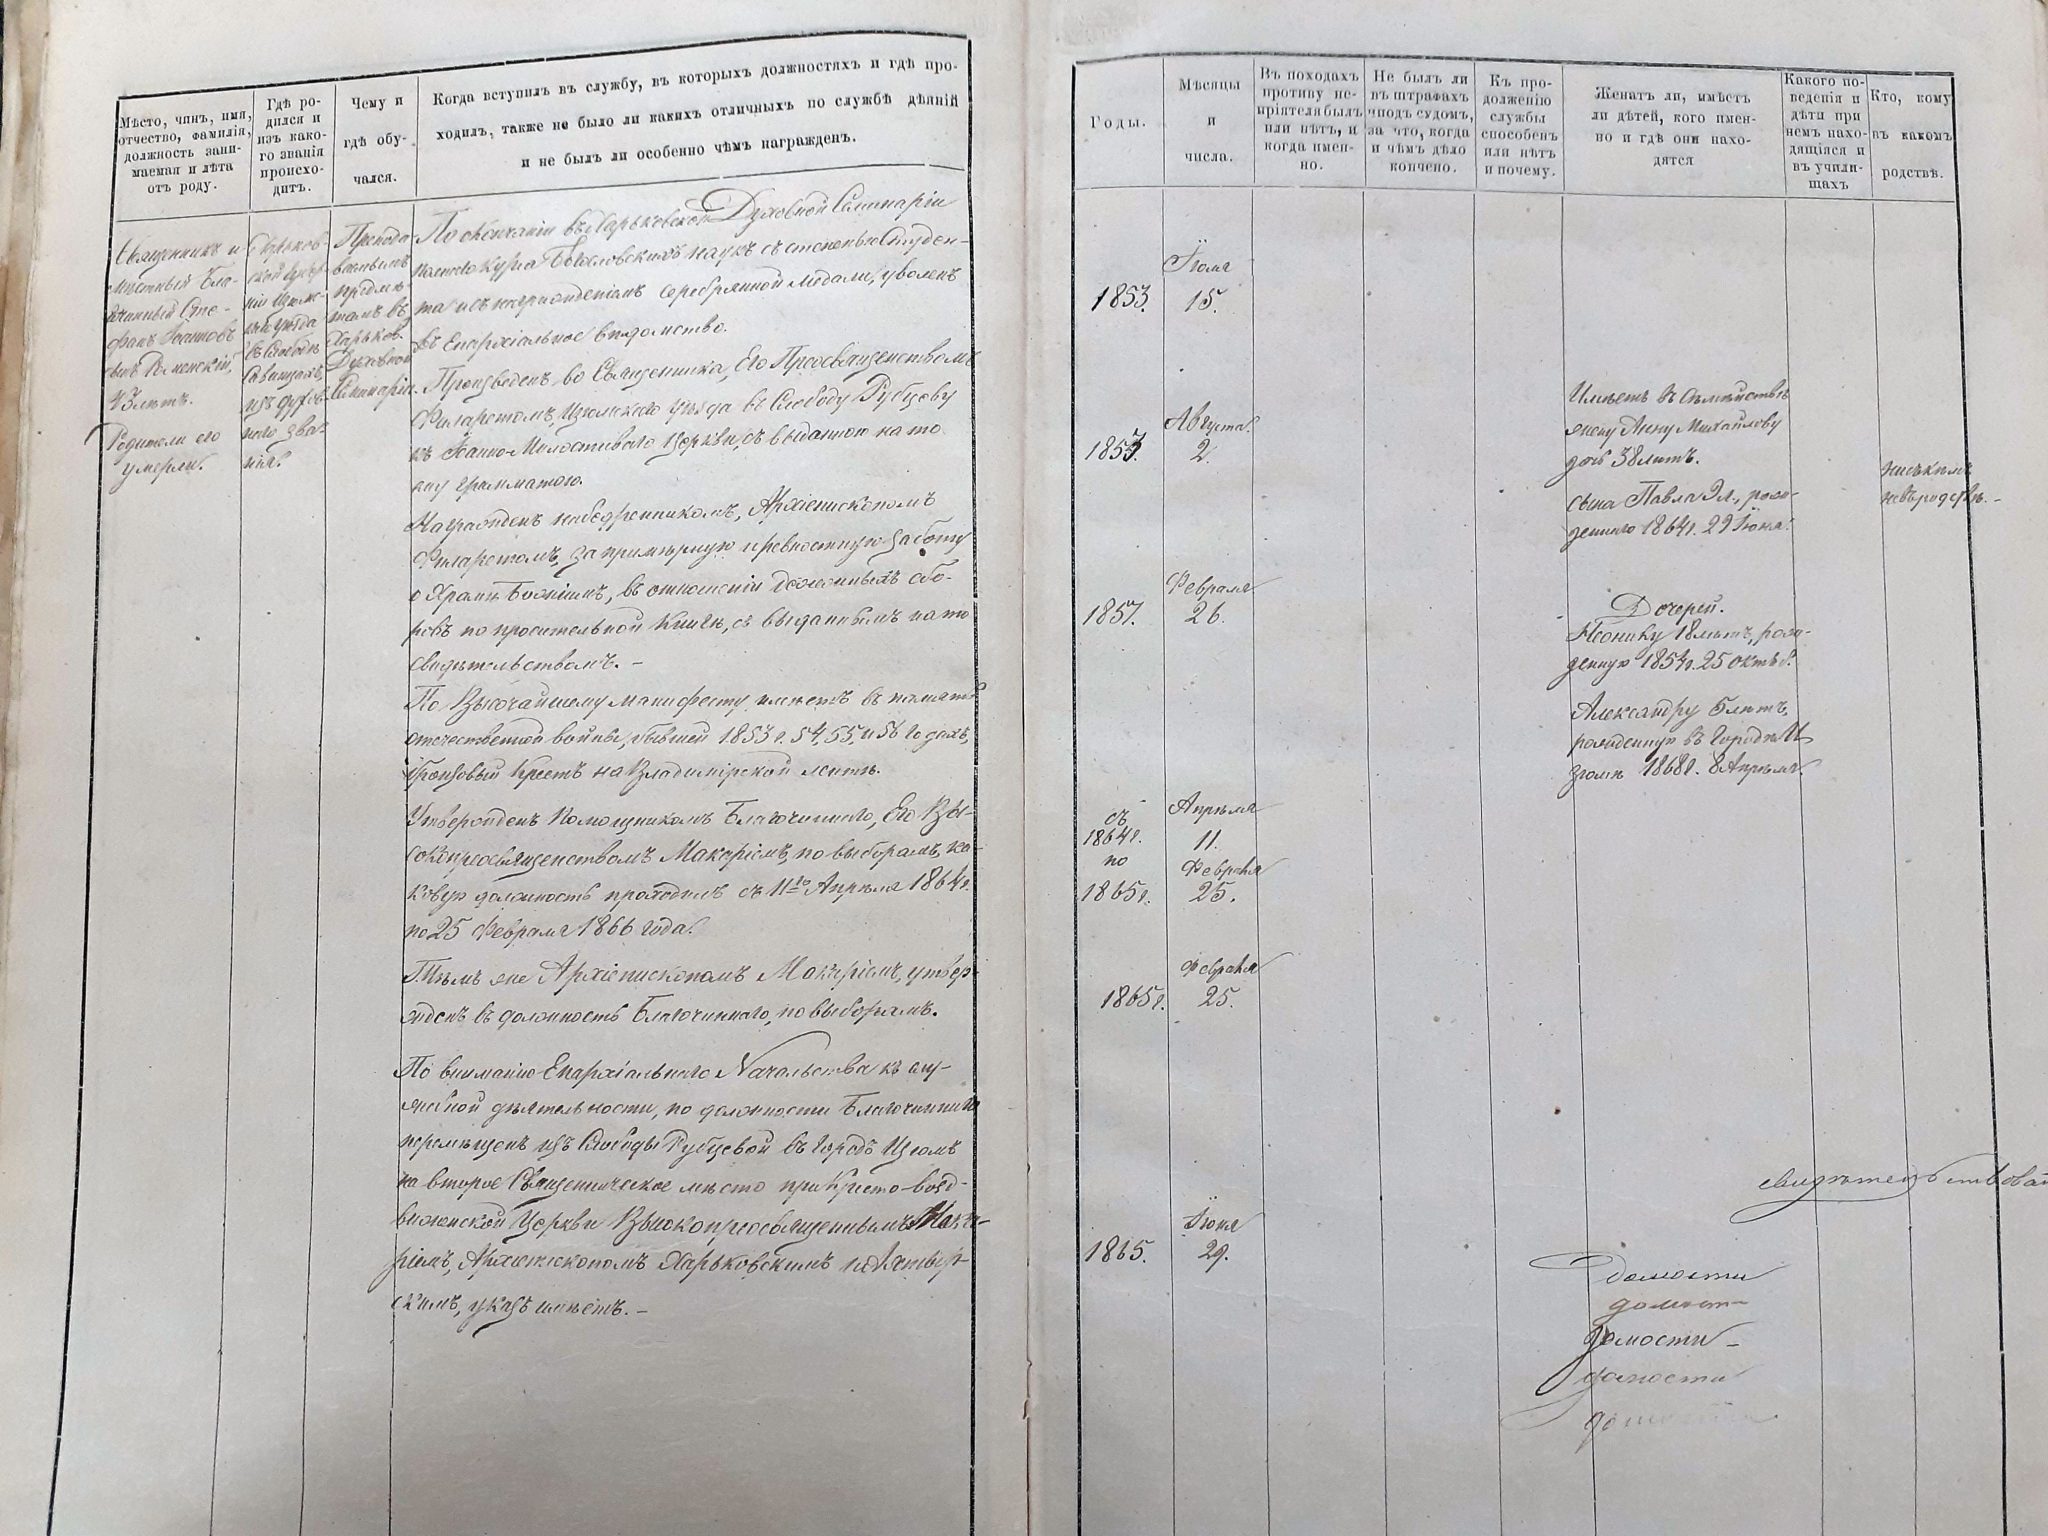 Мѣсто, чинъ, имя,
отчество, фамилія,
должность зани-
маемая и лѣта
отъ роду.
Гдѣ ро-
дился и
изъ како-
го званія
происхо-
дитъ.
Чему и
гдѣ обу-
чался.
Когда вступилъ въ службу, въ которыхъ должностяхъ и гдѣ про-
ходилъ, также не было ли какихъ отличныхъ по службѣ дѣяній
и не былъ ли особенно чѣмъ награжденъ.
Священникъ и
мѣстный Бла-
гочинный Сте-
фанъ Іоанновъ
сынъ
43 лѣтъ.
Родители его
умерли.
Харьков-
ской Губер-
ніи Изюм-
скаго уѣзда
въ Слободѣ
изъ духов-
наго зва-
нія.
Препода-
ваемымъ
предме-
тамъ въ
Харьков.
Духовной
Семинаріи.
По окончаніи въ Харьковской Духовной Семинаріи
полнаго курса Богословскихъ наукъ съ степенью Студен-
та и съ награжденіемъ серебрянной медали, уволенъ
въ Епархіальное вѣдомство.
Произведенъ во Священника, Его Преосвященствомъ
Филаретомъ, Изюмскаго уѣзда въ Слободу Рубцову
къ Іоанно-Милостиваго церкви, съ выданною на то
ему грамматою.
Награжденъ набедренникомъ, Архіепископомъ
Филаретомъ, за примѣрную и ревностную заботу
о Храмѣ Божіемъ, въ отношеніи денежныхъ сбо-
ровъ по просительной книгѣ, съ выданнымъ на то
свидѣтельствомъ. –
По Высочайшему манифесту имѣетъ въ память
отечественной войны, бывшей 1853 г. 54, 55, и 56 годахъ,
бронзовый Крестъ на Владимірской лентѣ.
Утвержденъ Помощникомъ Благочиннаго, Его Вы-
сокопреосвященствомъ Макаріемъ, по выборамъ, ка-
ковую должность проходилъ съ 11го Апрѣля 1864 г.
по 25 Февраля 1866 года.
Тѣмъ же Архіепископомъ Макаріемъ, утвер-
жденъ въ должность Благочиннаго, по выборамъ.
По вниманію Епархіальнаго Начальства къ слу-
жебной дѣятельности, по должности Благочиннаго
перемѣщенъ изъ Слободы Рубцевой въ Городъ Изюмъ
на второе Священническое мѣсто при Кресто-воз-
движенской Церкви Высокопреосвященнымъ Мака-
ріемъ, Архіепископомъ Харьковскимъ и Ахтыр-
скимъ, указъ имѣетъ. –
Годы.
Мѣсяцы
и
числа.
Въ походахъ
противу не-
пріятеля былъ
или нѣтъ, и
когда имен-
но.
Не былъ ли
въ штрафахъ
подъ судомъ,
за что, когда
и чѣмъ дѣло
кончено.
Къ про-
долженію
службы
способенъ
или нѣтъ
и почему.
Женатъ ли, имѣетъ
ли дѣтей, кого имен-
но и гдѣ они нахо-
дятся
Какого по-
веденія и
дѣти при
немъ нахо-
дящіяся и
въ учили-
щахъ
Кто, кому
въ какомъ
родствѣ.
1853. Іюля
15.
1853. Августа
2.
1857. Февраля
26.
съ
1864 г.
Апрѣля
11.
по
1865 г.
Февраля
25.
1865 г. Февраля
25.
1865. Іюня
29.
Имѣетъ въ семействѣ
жену Анну Михайлову
дочь 38 лѣтъ.
сына Павла 9 л., рож-
деннаго 1864 г. 29 Іюня.
Дочерей.
18 лѣтъ, рож-
денную 1854 г. 25 Октяб.
Александру 5 лѣтъ,
рожденную въ городѣ И
зюмѣ 1868 г. 8 Апрѣля.
ни съ кѣмъ
не въ родствѣ. –
домости
домост –
домости –
домости